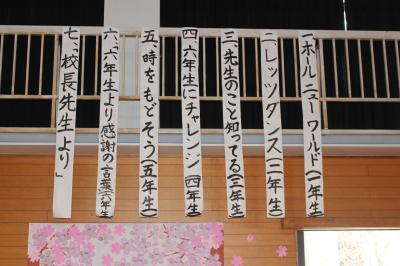 一、ホールニューワールド(一年生)
二、レッツダンス(二年生)
三、先生のこと知ってる(三年生)
四、六年生にチャレンジ(四年生)
五、時をもどそう(五年生)
六、「六年生より感謝の言葉」(六年生)
七、「校長先生より」